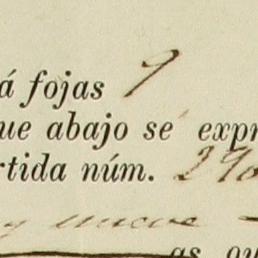 á fojas 9
ue abajo se expr
rtida núm. 290
y nueve
as qu